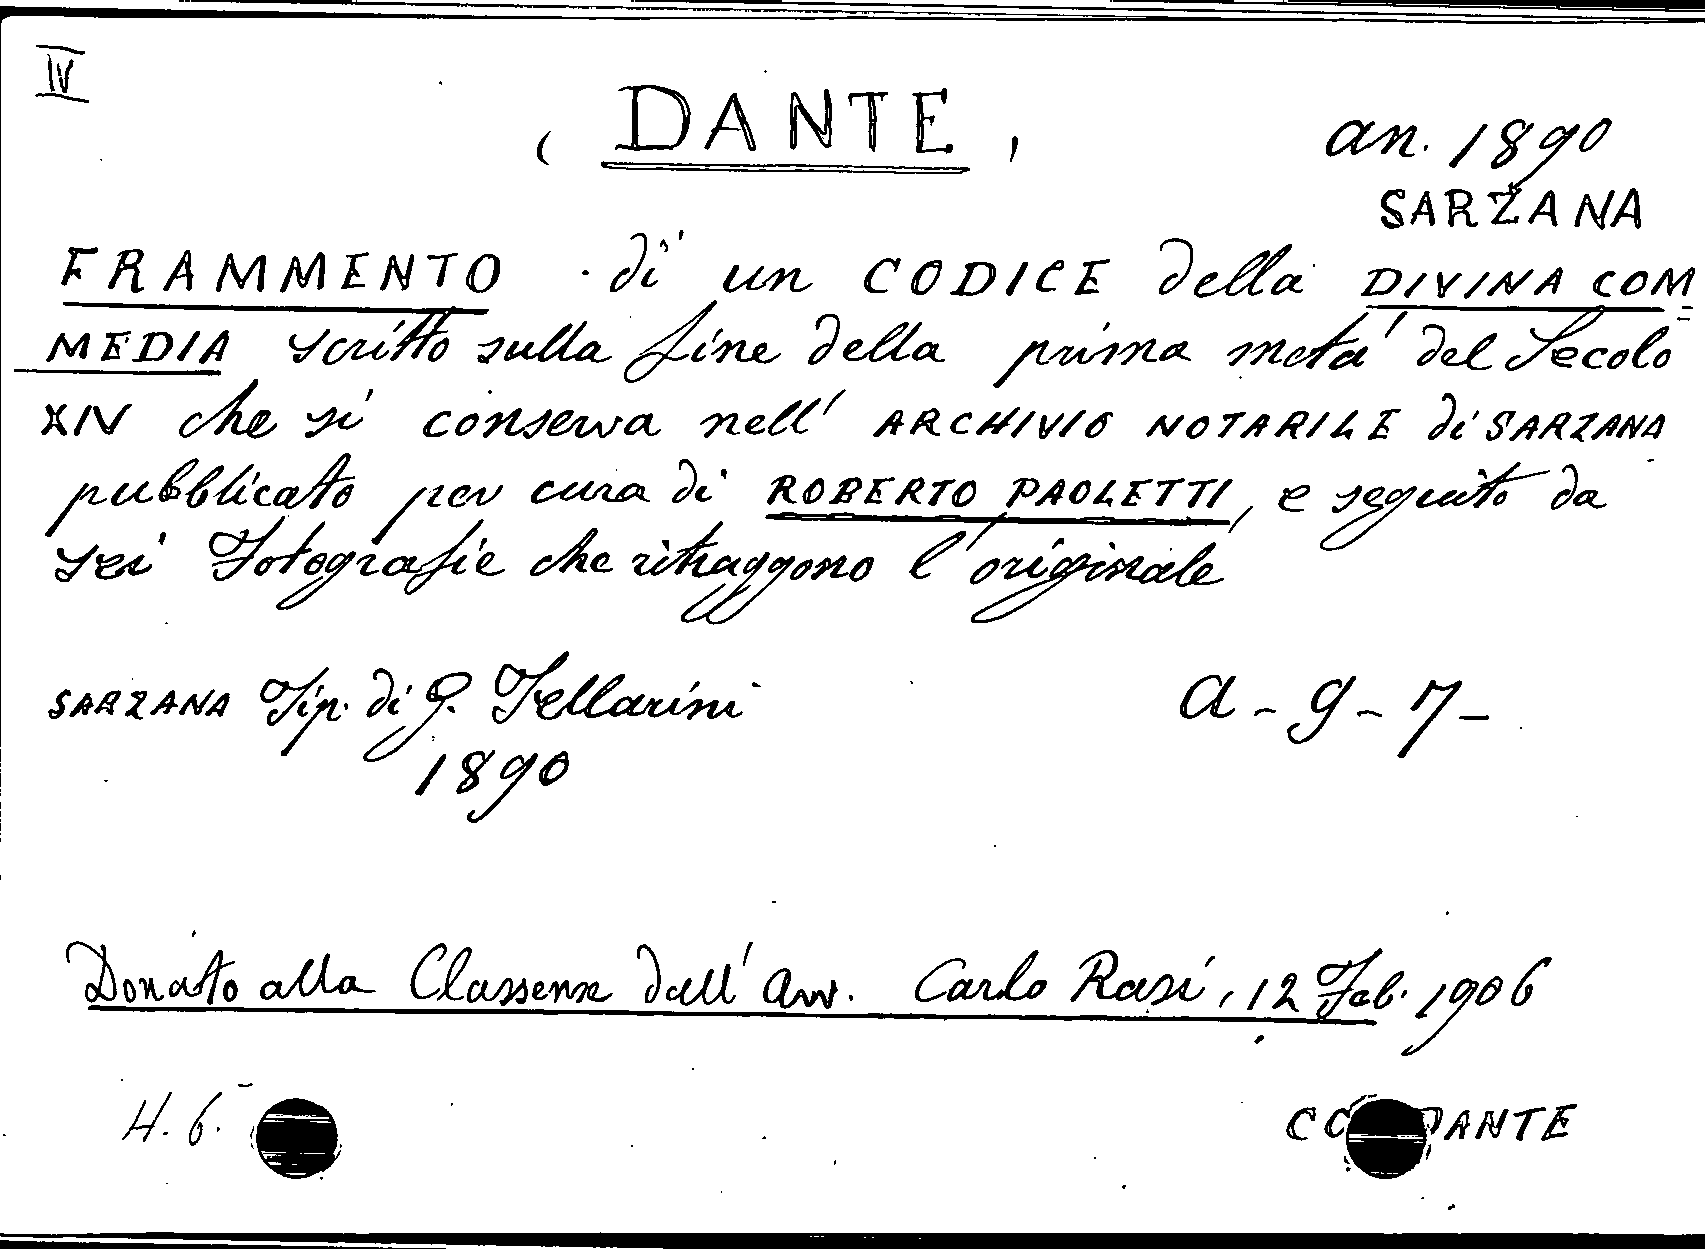 IV
( DANTE ,
an. 1890
SARZANA
FRAMMENTO di un CODICE della DIVINA COM=
MEDIA scritto sulla fine della prima metá del Secolo
XIV che si conserva nell' ARCHIVIO NOTARILE di SARZANA
pubblicato per cura di ROBERTO PAOLETTI, e seguito da
sei Fotografie che ritraggono l'originale
SARZANA Tip. di G. Tellarini
a - 9 - 7 -
1890
Donato alla Classense dall' Avv. Carlo Rasi, 12 Feb. 1906
H. 6.
DANTE